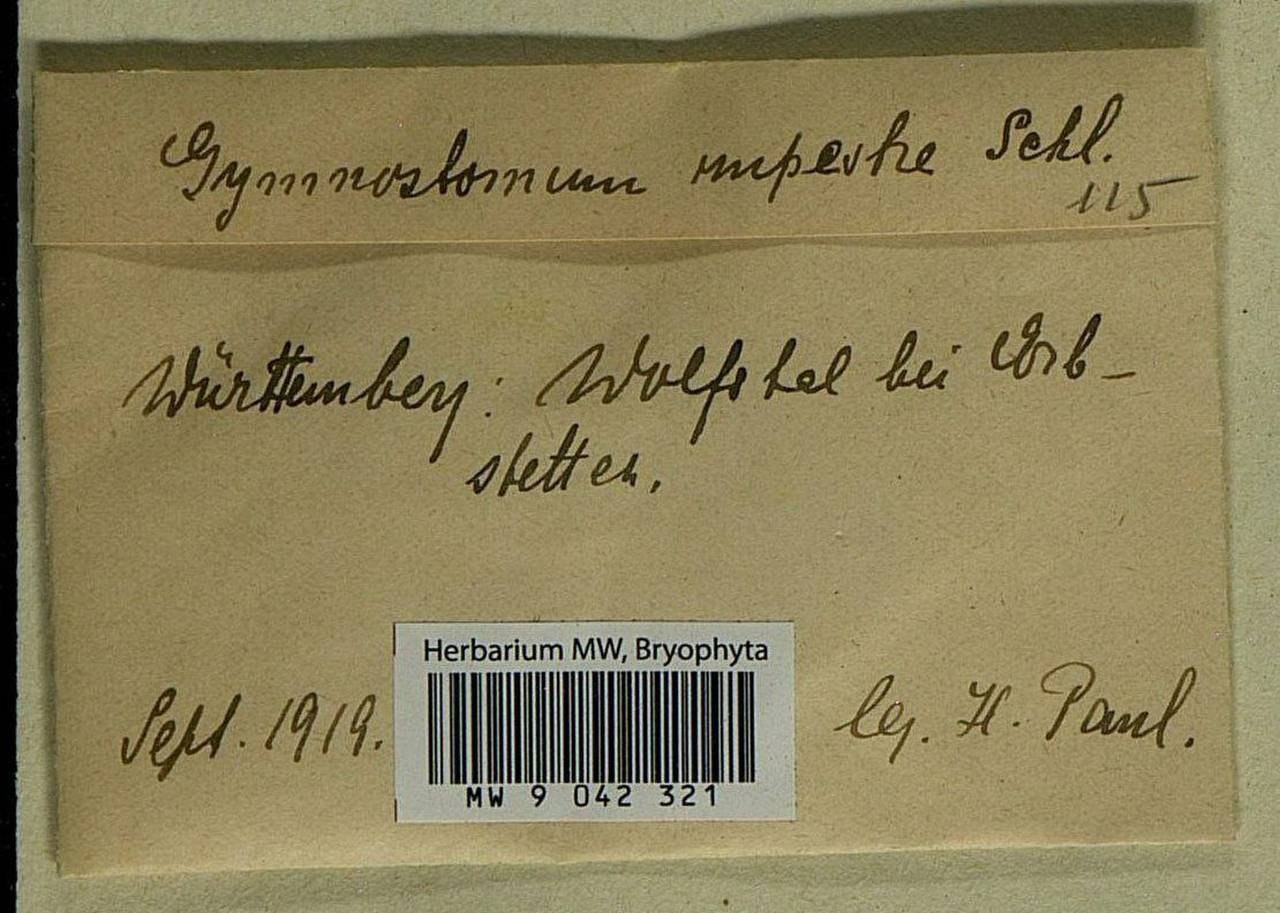 Gymnostomum rupestre Schl.
115
Württemberg: Wolfstal bei Erb-
stetten.
Herbarium MW, Bryophyta
MW 9 042 321
Sept. 1919.
leg. H. Paul.